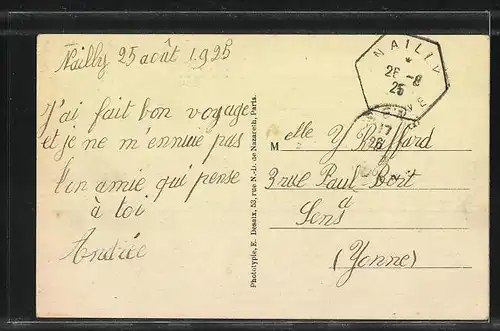 Nailly 25 août 1925
J'ai fait bon voyage
et je ne m'ennuie pas
Ton amie qui pense
à toi
Andrée
Phototypie, E. Desaix, 53, rue N.-D. de Nazareth, Paris.
NAILLY
*
26 - 8
25
YONNE
17
26
Melle Y Raffard
3 rue Paul-Bert
à
Sens
(Yonne)